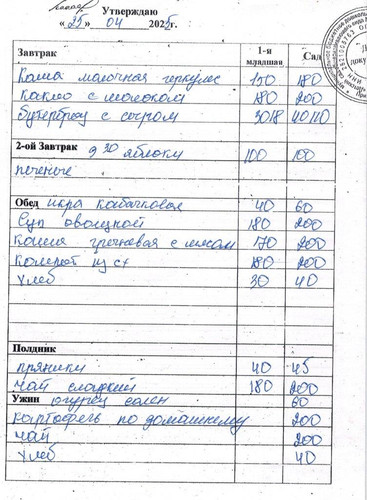 Утверждаю
«25» 04 2025г.
Завтрак 1-я младшая Сад
Каша молочная геркулес 150 180
Какао с молоком 180 200
Бутерброд с сыром 30/8 40/10
2-ой Завтрак 9 30 яблоки 100 100
печенье
Обед икра кабачковая 40 60
Суп овощной 180 200
Каша гречневая с мясом 170 200
Компот из с/ 180 200
Хлеб 30 40
Полдник
пряники 40 45
чай сладкий 180 200
Ужин огурец солен 60
картофель по домашнему 200
чай 200
хлеб 40